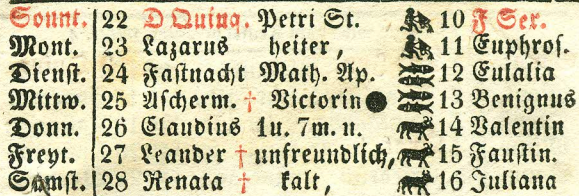 Sonnt. 22 D Quinq. Petri St. 10 F Sex.
Mont. 23 Lazarus heiter, 11 Euphros.
Dienst. 24 Fastnacht Math. Ap. 12 Eulalia
Mittw. 25 Ascherm. † Victorin 13 Benignus
Donn. 26 Claudius 1u. 7m. n. 14 Valentin
Freyt. 27 Leander † unfreundlich, 15 Faustin.
Samst. 28 Renata † kalt, 16 Juliana